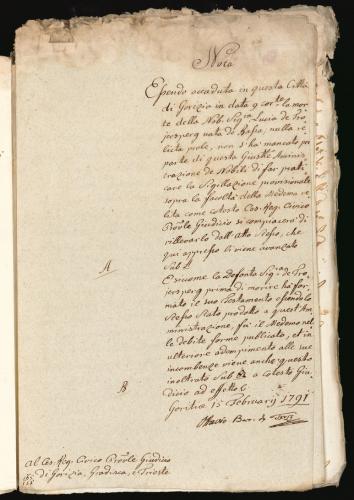 Nota
Essendo accaduta in questa Città
di Gorizia in data 9 cor:te la mor-
te della Nob. Sig:ra Lucia de Tro-
jersperg nata di Rassa, nulla re-
licta prole, non s'ha mancato per
parte di questa Giusta Aminis-
trazione de Nobili di far prati-
care la Sigillazione provisionale
sopra la facoltà della Medema re-
lita come cotesto Ces: Reg: Civico
Prov:le Giudicio si compiacerà di
rillevarlo dall'atto stesso, che
qui appresso li viene avanzato
Sub A
A
E siccome la defonta Sig:ra de Tro-
jersperg prima di morire ha for-
mato il suo Testamento essendo lo
stesso stato prodotto a quest'Am-
ministrazione, fù il Medemo nel-
le debite forme publicato, et in
ulteriore adempimento alle sue
incombenze viene anche questo
B
inoltrato Sub B a cotesto Giu-
dicio ad effettu
Goritia 15 February 1791
Ottavio Bar: de Terzi
Al Ces: Reg: Civico Prov:le Giudicio
di Gorizia, Gradisca, e Trieste